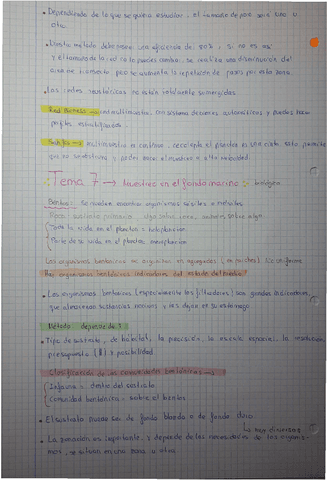 • Dependiendo de lo que se quiera estudiar, el tamaño de poro será uno u
otro.
• Nuestro método debe poseer una eficiencia del 80%, si no es así
y el tamaño de la red no lo puedes cambiar, se realiza una disminución del
área de muestreo pero se aumenta la repetición de pasos por esta zona.
• Las redes neustónicas no están totalmente sumergidas
Red → red multimuestras, con sistema de cierres automáticos y puedes hacer
perfiles estratificados.
→ multimuestras en continuo, recolecta el plancton en una cinta, solo permite
que no se destruya y poder hacer el muestreo a alta velocidad.
Tema 7 → Muestreo en el fondo marino: biológica
Bentos: Se pueden encontrar organismos sésiles o móviles
Roca: sustrato primario, alga sobre roca, sobre alga
Toda la vida en el plancton = holoplancton
Parte de su vida en el plancton = meroplancton
Los organismos bentónicos se organizan en agregados (en parches) no uniforme
Hay organismos bentónicos indicadores del estado del medio
• Los organismos bentónicos (especialmente los filtradores) son grandes indicadores,
que almacenan sustancias nocivas y las dejan en su estómago
Método depende de:
• Tipo de sustrato, de hábitat, la precisión, la escala espacial, la resolución,
presupuesto y posibilidad
Clasificación de las comunidades bentónicas →
Infauna = dentro del sustrato
Comunidad bentónica = sobre el bentos
• El sustrato puede ser de fondo blando o de fondo duro
↳ muy diversos
• La zonación es importante, y depende de las necesidades de los organis-
mos, se sitúan en una zona u otra.